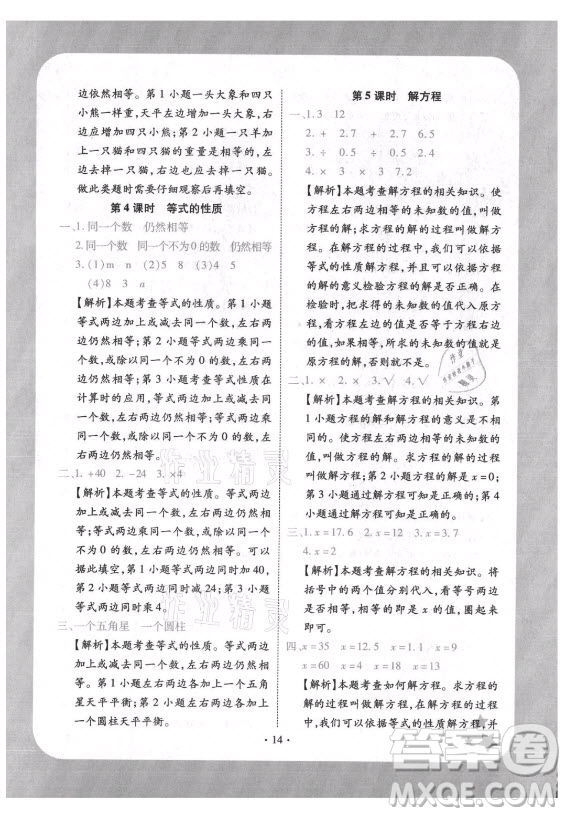 边依然相等。第 1 小题一头大象和四只
小熊一样重,天平左边增加一只大象,右
边应增加四只小熊。第 2 小题左右两边
加上一只狗和四只猫的重量是相等的,右
边再加上一只猫,左边也应加上一只猫。
做此类题时需要仔细观察后再填空。
第 4 课时 等式的性质
一、1. 同一个数 仍然相等
2. 同一个数 同一个不为 0 的数 仍然相等
3. (1)m a (2)9 15 (3)8 n (4)8
【解析】本题考查等式的性质。第 1 小题
等式两边加上或减去同一个数,左右两边
仍然相等。第 2 小题等式两边乘同一个
数,或除以同一个不为 0 的数,左右两边
仍然相等。第 3 小题考查等式的性质在
计算时的应用,等式两边加上或减去同一
个数,左右两边仍然相等。等式两边乘同
一个数,或除以同一个不为 0 的数,左右
两边仍然相等。
二、1. +40 2. -24 3. ×4
【解析】本题考查等式的性质。等式两边
加上或减去同一个数,左右两边仍然相
等。等式两边乘同一个数,或除以同一个
不为 0 的数,左右两边仍然相等。根据等
式的性质,第 1 小题等式两边同时加 40,
第 2 小题等式两边同时减 24;第 3 小题
等式两边同时乘 4。
三、一个五角星 一个圆柱
【解析】本题考查等式的性质。等式两边
加上或减去同一个数,左右两边仍然相
等。第 1 小题左右两边同时减去一个五角
星天平平衡;第 2 小题左右两边同时加上
一个圆柱天平平衡。
第 5 课时 解方程
一、1. 3 12
2. + 2.7 + 2.7 6.5
3. ÷ 0.5 ÷ 0.5 12
4. × × 7.2
【解析】本题考查解方程的相关知识。使
方程左右两边相等的未知数的值,叫做
方程的解;求方程的解的过程叫做解方
程。在解方程的过程中,我们可以依据
等式的性质解方程,并且可以依据方程
的解的意义检验方程的解是否正确。在
检验时,把求得的未知数的值代入原方
程,看方程左边的值是否等于方程右边
的值,如果相等,所求的未知数的值就
是原方程的解,否则就不是。
二、1. × 2. × 3. √ 4. √
【解析】本题考查解方程的相关知识。第
1 小题方程的解和解方程的意义是不同
的。使方程左右两边相等的未知数的值,
叫做方程的解。求方程的解的过程叫做
解方程。第 2 小题方程的解可能是 x=0。
第 3 小题根据题意可知是正确的。第 4
小题根据题意可知是正确的。
三、1. x=17.6 2. x=12 3. x=13.7
4. x=2
【解析】本题考查解方程的相关知识。将
括号中的两个值分别代入原方程,看是
否相等,相等的即是 x 的值,圈起来即
可。
四、x=35 x=12.5 x=1.1 x=9
x=60 x=4 x=118
【解析】本题考查如何解方程。求方程的
解的过程叫做解方程。在解方程的过程
中,我们可以依据等式的性质解方程,并
· 14 ·
作业精灵
作业精灵
答案圈
MXQE.COM